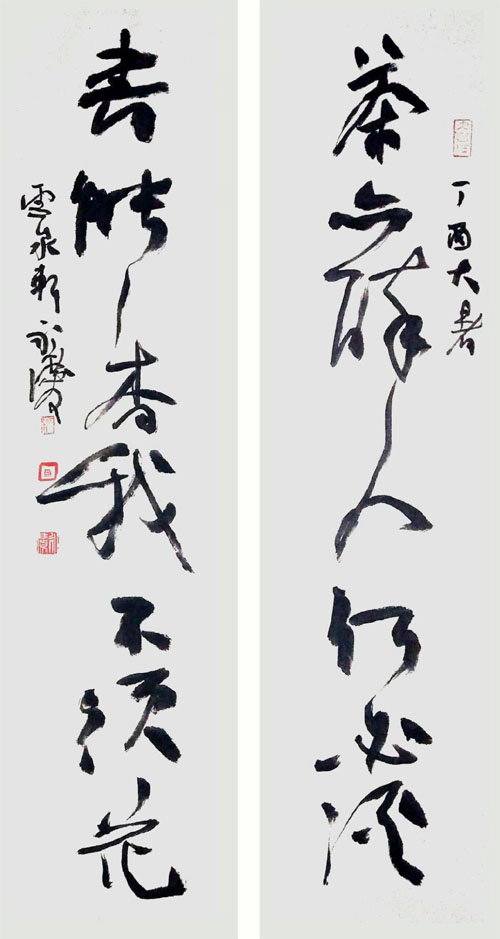 丁酉大暑
茶亦醉人何必酒
書能香我不須花
雲泉軒